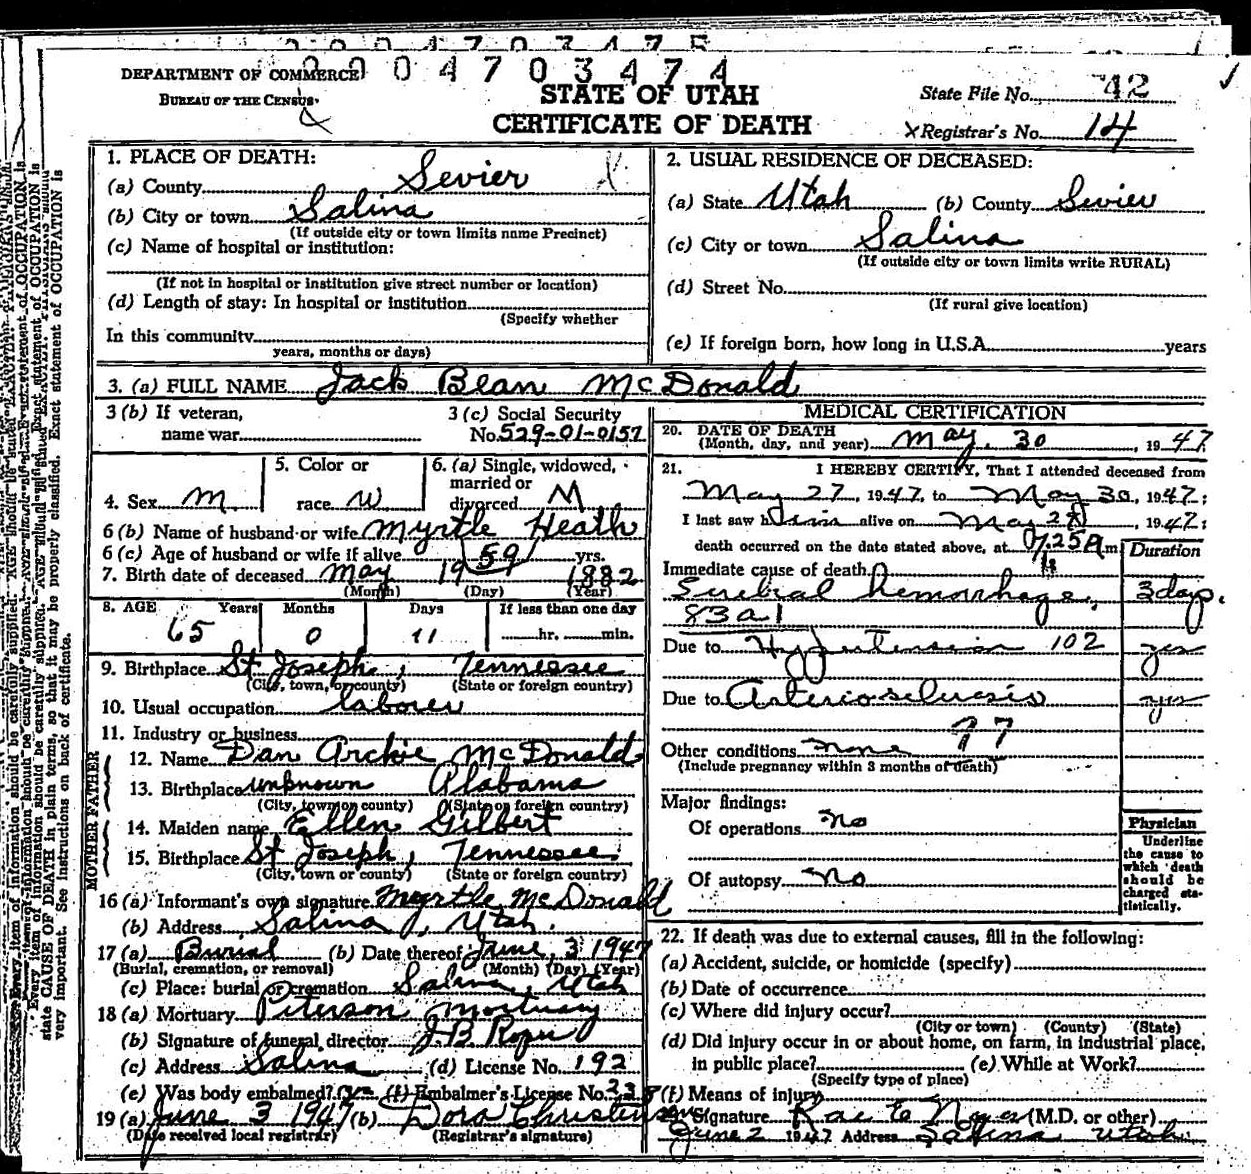 2004703475
2004703474
DEPARTMENT OF COMMERCE
BUREAU OF THE CENSUS
STATE OF UTAH
CERTIFICATE OF DEATH
State File No. 42
x Registrar's No. 14
1. PLACE OF DEATH:
(a) County Sevier
(b) City or town Salina
(If outside city or town limits name Precinct)
(c) Name of hospital or institution:
(If not in hospital or institution give street number or location)
(d) Length of stay: In hospital or institution
(Specify whether
In this community
years, months or days)
2. USUAL RESIDENCE OF DECEASED:
(a) State Utah (b) County Sevier
(c) City or town Salina
(If outside city or town limits write RURAL)
(d) Street No.
(If rural give location)
(e) If foreign born, how long in U.S.A. years
3. (a) FULL NAME Jack Bean McDonald
3 (b) If veteran,
name war
3 (c) Social Security
No. 529-01-0157
4. Sex M
5. Color or
race W
6. (a) Single, widowed,
married or
divorced M
6 (b) Name of husband or wife Myrtle Heath
6 (c) Age of husband or wife if alive 59 yrs.
7. Birth date of deceased May 19 1882
(Month) (Day) (Year)
8. AGE Years Months Days If less than one day
65 0 11 hr. min.
9. Birthplace St Joseph, Tennessee
(City, town, or county) (State or foreign country)
10. Usual occupation laborer
11. Industry or business
FATHER
12. Name Dan Archie McDonald
13. Birthplace unknown Alabama
(City, town or county) (State or foreign country)
MOTHER
14. Maiden name Ellen Gilbert
15. Birthplace St Joseph, Tennessee
(City, town or county) (State or foreign country)
16 (a) Informant's own signature Myrtle McDonald
(b) Address Salina, Utah.
17 (a) Burial (b) Date thereof June, 3 1947
(Burial, cremation, or removal) (Month) (Day) (Year)
(c) Place: burial or cremation Salina, Utah
18 (a) Mortuary Peterson Mortuary
(b) Signature of funeral director J.B. Roper
(c) Address Salina (d) License No. 192
(e) Was body embalmed? yes (f) Embalmer's License No. 238
19 (a) June 3 1947 (b) Dora Christensen
(Date received local registrar) (Registrar's signature)
MEDICAL CERTIFICATION
20. DATE OF DEATH
(Month, day, and year) May. 30, 1947
21. I HEREBY CERTIFY, That I attended deceased from
May 27, 1947, to May 30, 1947;
I last saw him alive on May 28, 1947;
death occurred on the date stated above, at 7:25 A m
Duration
Immediate cause of death
Serebral hemorrhage, 3 days.
83a1
Due to Hypertension 102 yrs
Due to Arteriosclerosis yrs
97
Other conditions none
(Include pregnancy within 3 months of death)
Major findings:
Of operations no
Of autopsy no
Physician
Underline
the cause to
which death
should be
charged sta-
tistically.
22. If death was due to external causes, fill in the following:
(a) Accident, suicide, or homicide (specify)
(b) Date of occurrence
(c) Where did injury occur?
(City or town) (County) (State)
(d) Did injury occur in or about home, on farm, in industrial place,
in public place? (e) While at Work?
(Specify type of place)
(f) Means of injury
Signature Rae E Noyes (M.D. or other)
June 2 1947 Address Salina Utah
Every item of information should be carefully supplied. AGE should be stated EXACTLY.
state CAUSE OF DEATH in plain terms, so that it may be properly classified. Exact statement of OCCUPATION is
very important. See instructions on back of certificate.